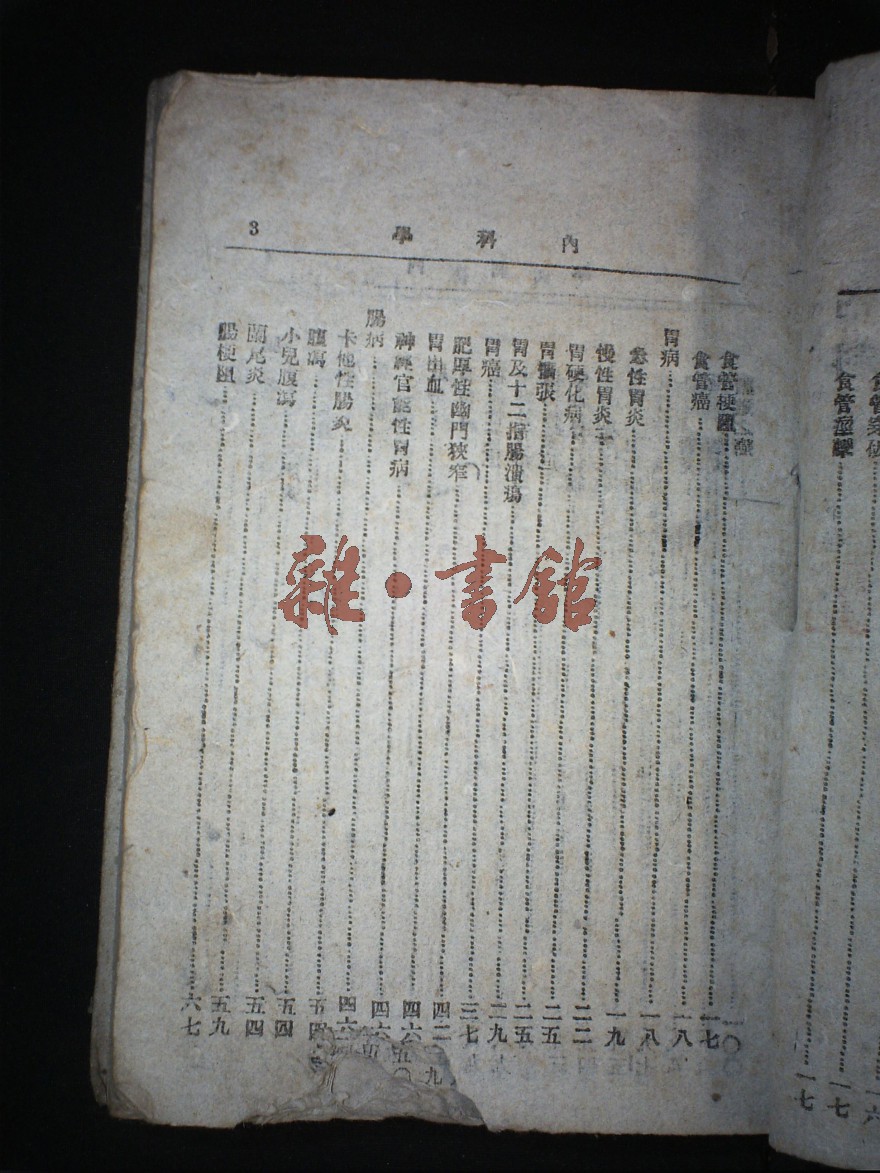 內科學 3
食管痙攣……一七
食管梗阻……一七
食管癌……一八
胃病……一八
急性胃炎……一九
慢性胃炎……二二
胃硬化病……二五
胃擴張……二五
胃及十二指腸潰瘍……二九
胃癌……三七
肥厚性幽門狹窄……四二
胃出血……四六
神經官能性胃病……四六
腸病……四六
卡他性腸炎……五四
腹瀉……五四
小兒腹瀉……五四
闌尾炎……五九
腸梗阻……六七
雜·書館